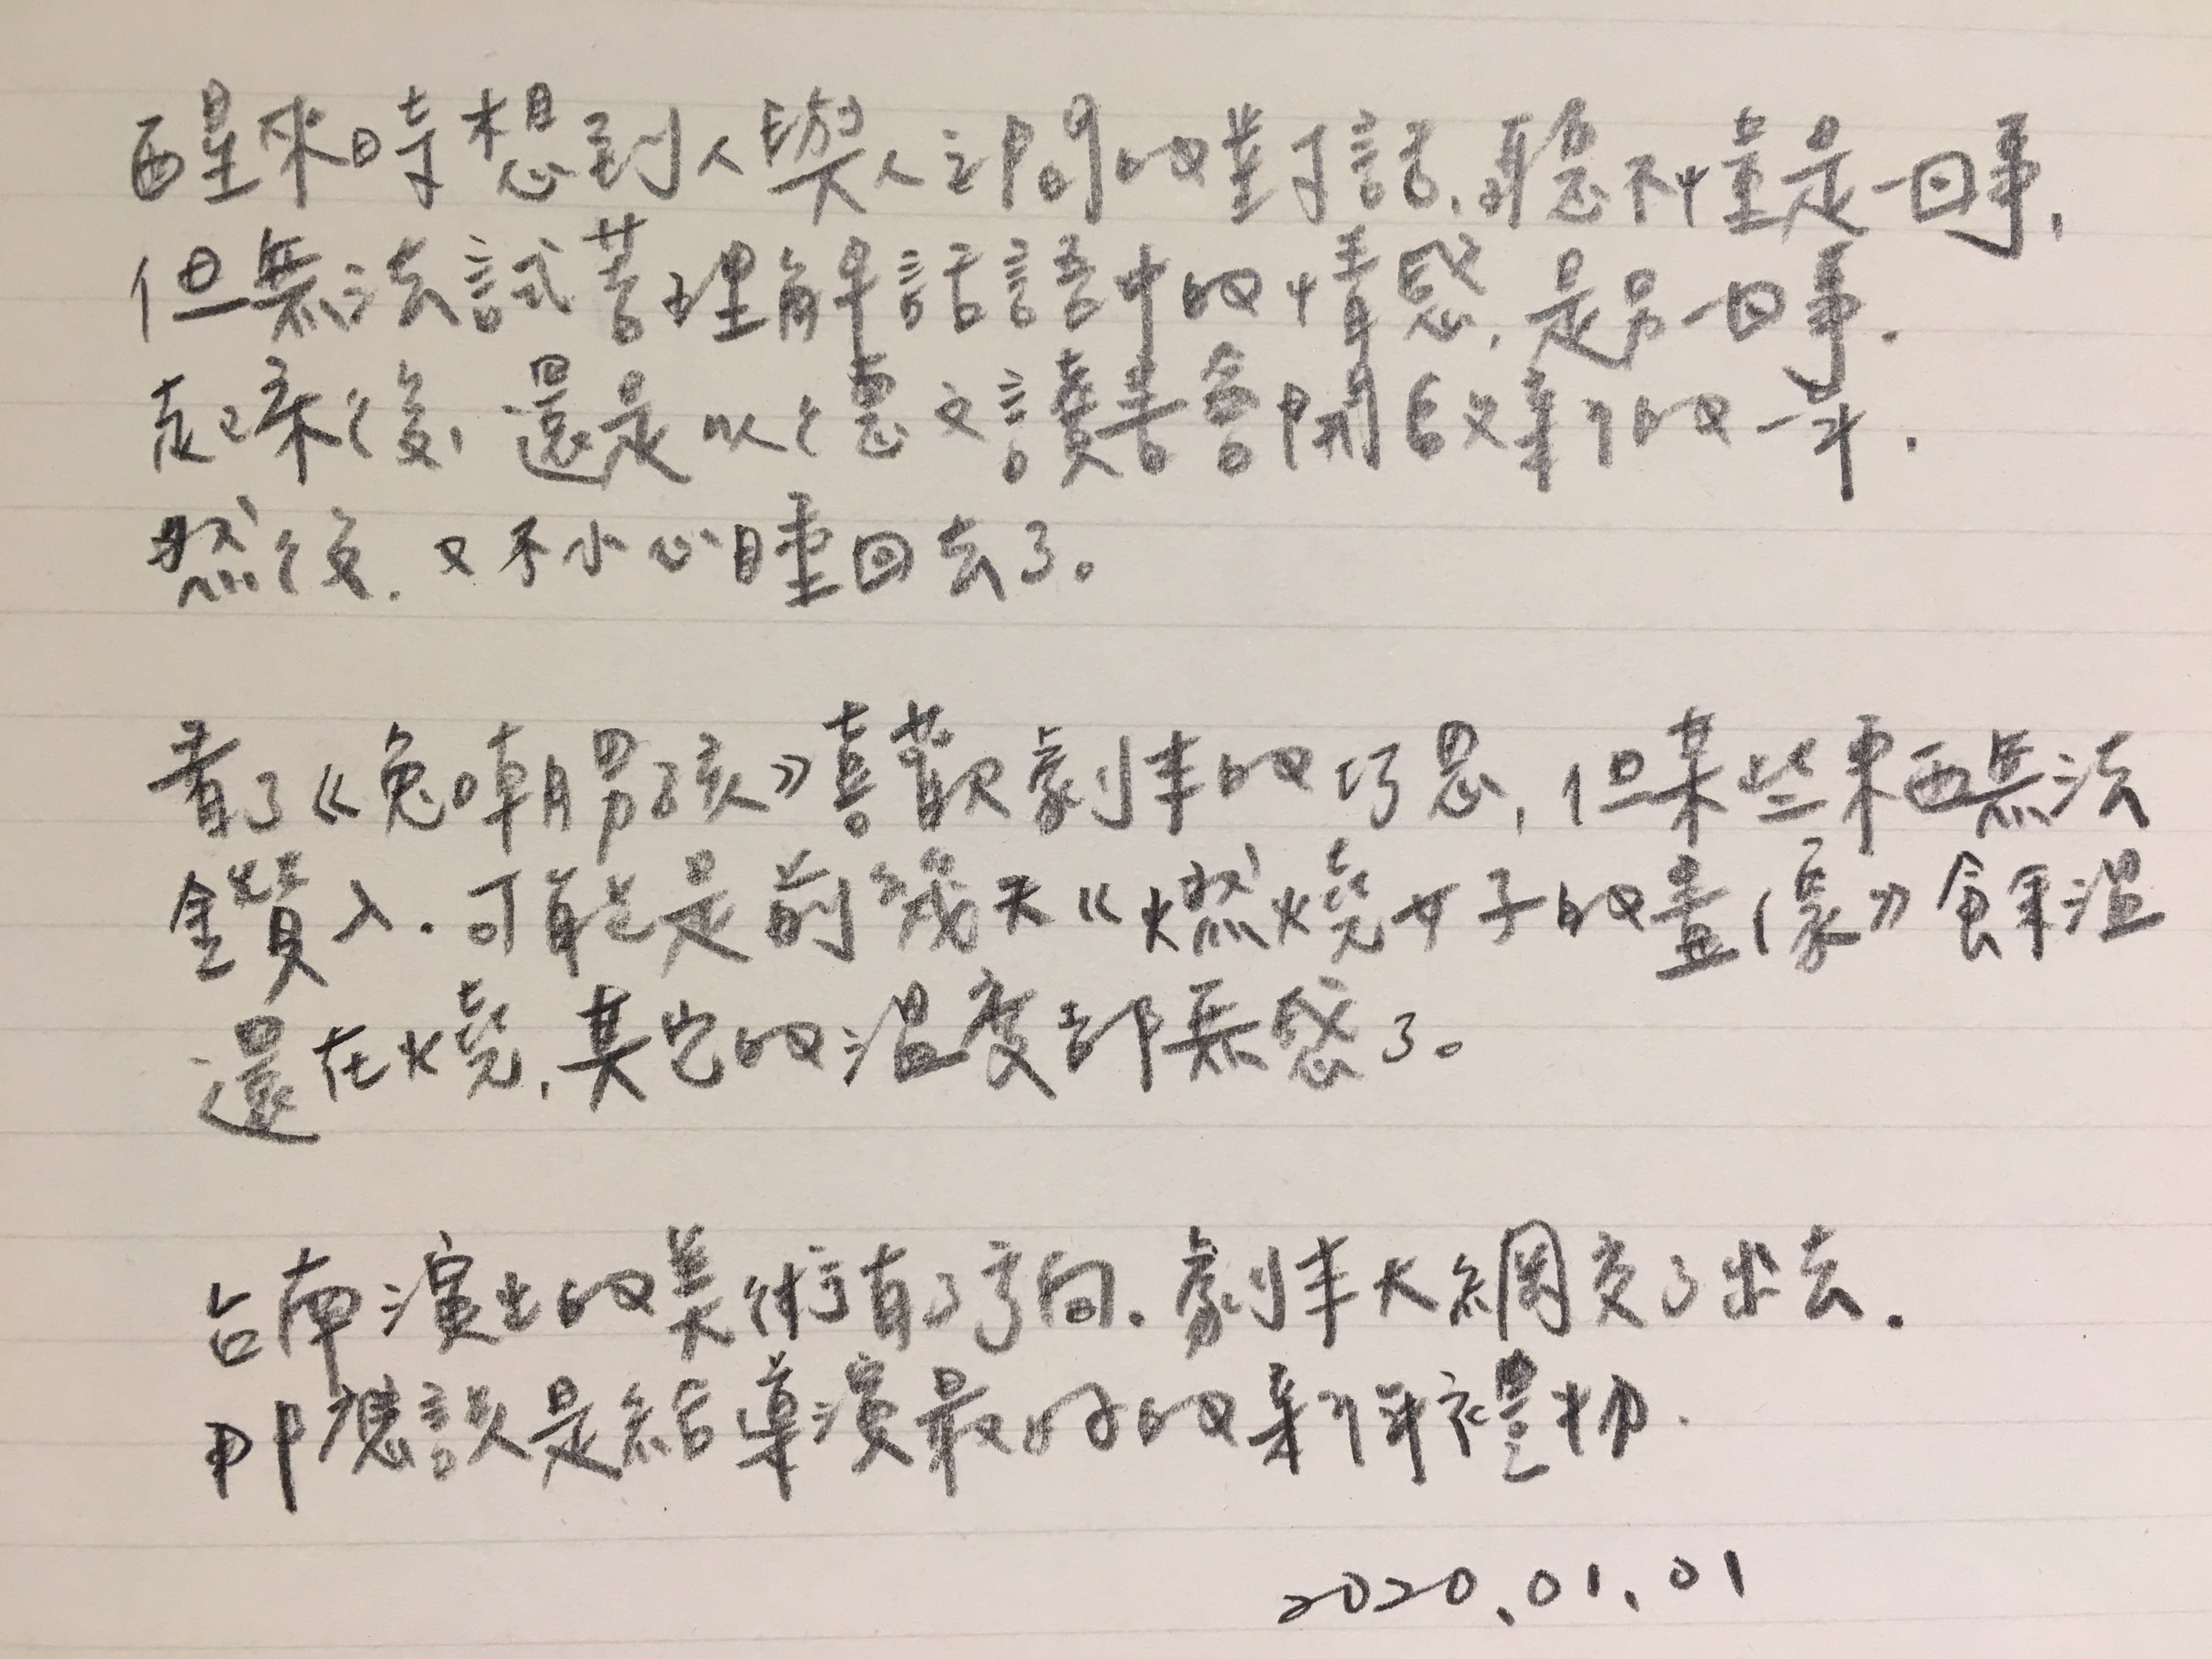 醒來時想到人與人之間的對話，聽不懂是一回事，
但無法試著理解話語中的情感，是另一回事．
起床後，還是以德文讀書會開啟新的一年．
然後．又不小心睡回去了。
看了《兔嘲男孩》喜歡劇本的巧思，但某些東西無法
鑽入．可能是前幾天《燃燒女子的畫像》餘溫
還在燒，其它的溫度都無感了。
台南演出的美術有了方向．劇本大綱交了出去．
那應該是給導演最好的新年禮物．
2020.01.01